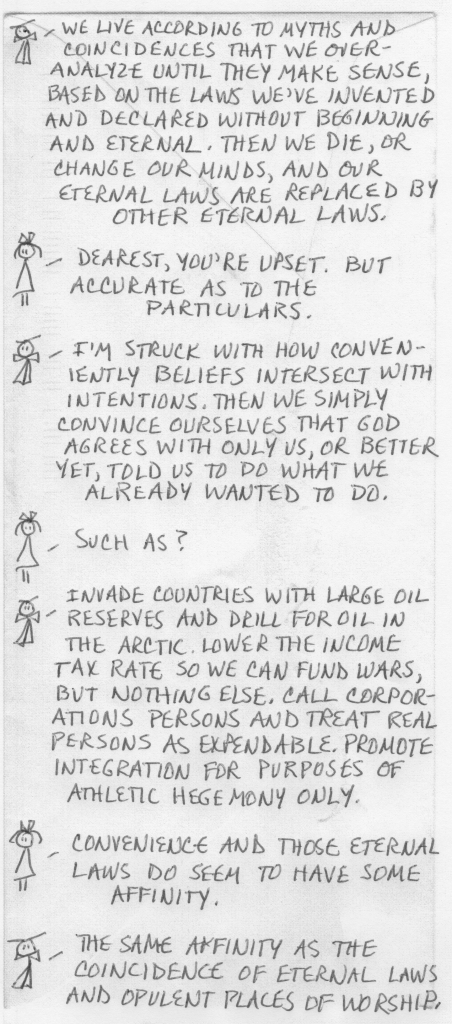 WE LIVE ACCORDING TO MYTHS AND
COINCIDENCES THAT WE OVER-
ANALYZE UNTIL THEY MAKE SENSE,
BASED ON THE LAWS WE'VE INVENTED
AND DECLARED WITHOUT BEGINNING
AND ETERNAL. THEN WE DIE, OR
CHANGE OUR MINDS, AND OUR
ETERNAL LAWS ARE REPLACED BY
OTHER ETERNAL LAWS.
DEAREST, YOU'RE UPSET. BUT
ACCURATE AS TO THE
PARTICULARS.
I'M STRUCK WITH HOW CONVEN-
IENTLY BELIEFS INTERSECT WITH
INTENTIONS. THEN WE SIMPLY
CONVINCE OURSELVES THAT GOD
AGREES WITH ONLY US, OR BETTER
YET, TOLD US TO DO WHAT WE
ALREADY WANTED TO DO.
SUCH AS?
INVADE COUNTRIES WITH LARGE OIL
RESERVES AND DRILL FOR OIL IN
THE ARCTIC. LOWER THE INCOME
TAX RATE SO WE CAN FUND WARS,
BUT NOTHING ELSE. CALL CORPOR-
ATIONS PERSONS AND TREAT REAL
PERSONS AS EXPENDABLE. PROMOTE
INTEGRATION FOR PURPOSES OF
ATHLETIC HEGEMONY ONLY.
CONVENIENCE AND THOSE ETERNAL
LAWS DO SEEM TO HAVE SOME
AFFINITY.
THE SAME AFFINITY AS THE
COINCIDENCE OF ETERNAL LAWS
AND OPULENT PLACES OF WORSHIP.